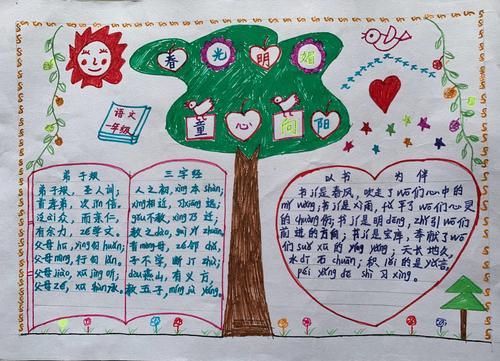 春光明媚
童心向阳
语文
一年级
弟子规
弟子规，圣人训；
首孝弟，次jǐn信。
泛ài众，而亲仁，
有余力，zé学文。
父母hū，yìng勿huǎn；
父母mìng，行勿lǎn。
父母jiào，xū jìng听；
父母zé，xū shùn承。
三字经
人之初，xìng本shàn；
xìng相近，习xiāng远；
gǒu不教，xìng乃迁；
教之dào，guì以zhuān；
昔mèng母，zé邻chǔ；
子不学，断jī zhù；
dòu燕山，有义方；
教五子，míng jù yáng。
以书为伴
书jí是春风，吹走了wǒ们心中的
mí wǎng；书jí是xì雨，平了wǒ们心灵
的chuāng伤；书jí是明dēng，zhǐ引wǒ们
前进的方向；书jí是宝库，奉献了wǒ
们suǒ xū的yíng yǎng。天长地久，
水dī石chuān；积lěi的是yǔ言，
péi yǎng de shì 习xìng。